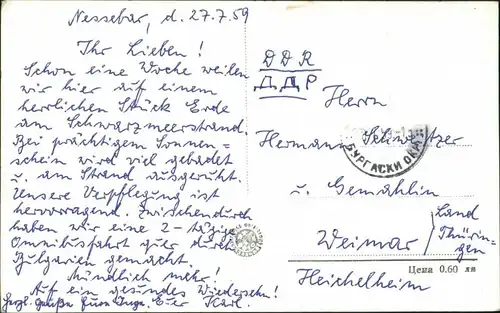 Nessebar, d. 27.7.59
Ihr Lieben!
Schon eine Woche weilen
wir hier auf einem
herrlichen Stück Erde
am Schwarzmeerstrand.
Bei prächtigem Sonnen=
schein wird viel gebadet
u. am Strand ausgeruht.
Unsere Verpflegung ist
hervorragend. Zwischendurch
haben wir eine 2-tägige
Omnibusfahrt quer durch
Bulgarien gemacht.
Mündlich mehr!
Auf ein gesundes Wiedersehn!
Herzl. Grüße Eure Inge. Euer Karl.
DDR
ДДР
Herrn
Hermann Schweitzer
u. Gemahlin
Weimar / Land
Thürin-
gen
Heichelheim
БУРГАСКИ ОКР
Цена 0.60 лв